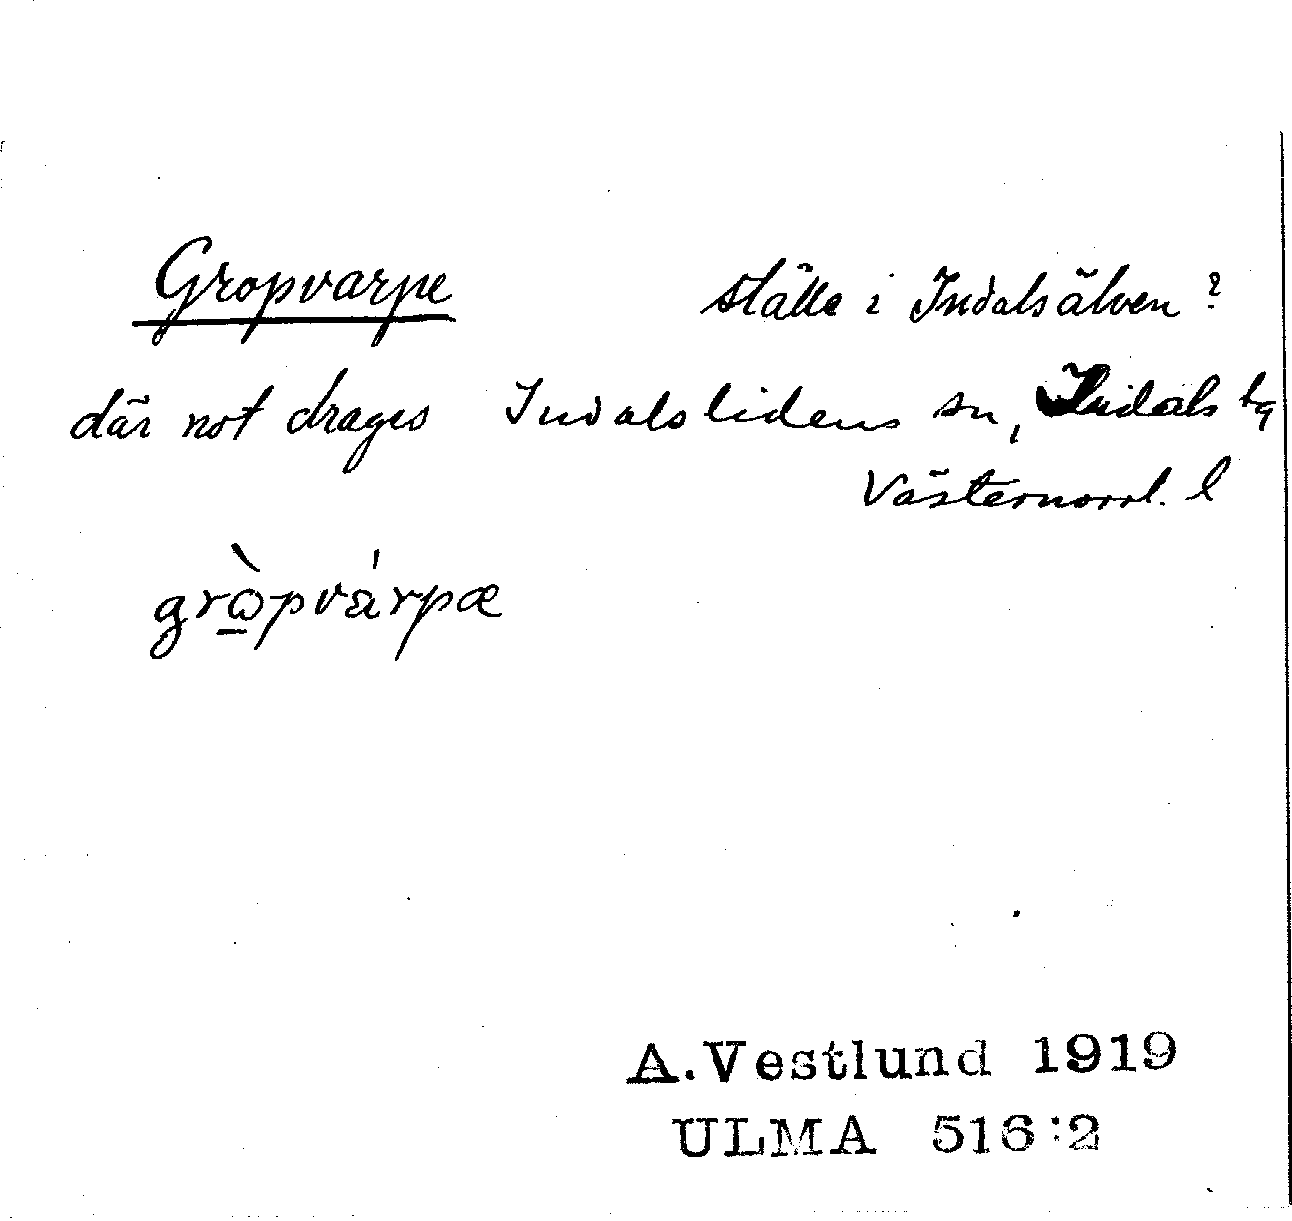 Gropvarpe ställe i Indalsälven?
där not drages Indalslidens sn, Indals tg
Västernorrl. l
grò̱pvárpæ
A.Vestlund 1919
ULMA 516:2